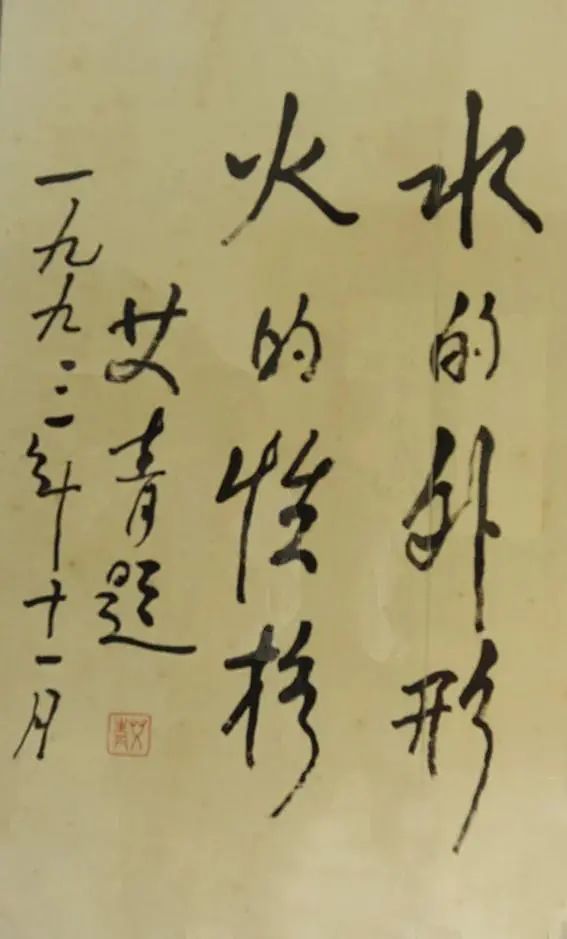 水的外形
火的性格
艾青题
一九九三年十一月
艾青